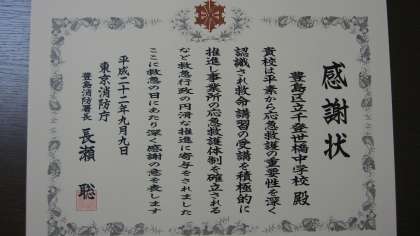 感謝状
豊島区立千登世橋中学校 殿
貴校は平素から応急救護の重要性を深く
認識され救命講習の受講を積極的に
推進し事業所の応急救護体制を確立される
など救急行政の円滑な推進に寄与をされました
ここに救急の日にあたり深く感謝の意を表します
平成二十二年九月九日
東京消防庁
豊島消防署長 長瀬 聡